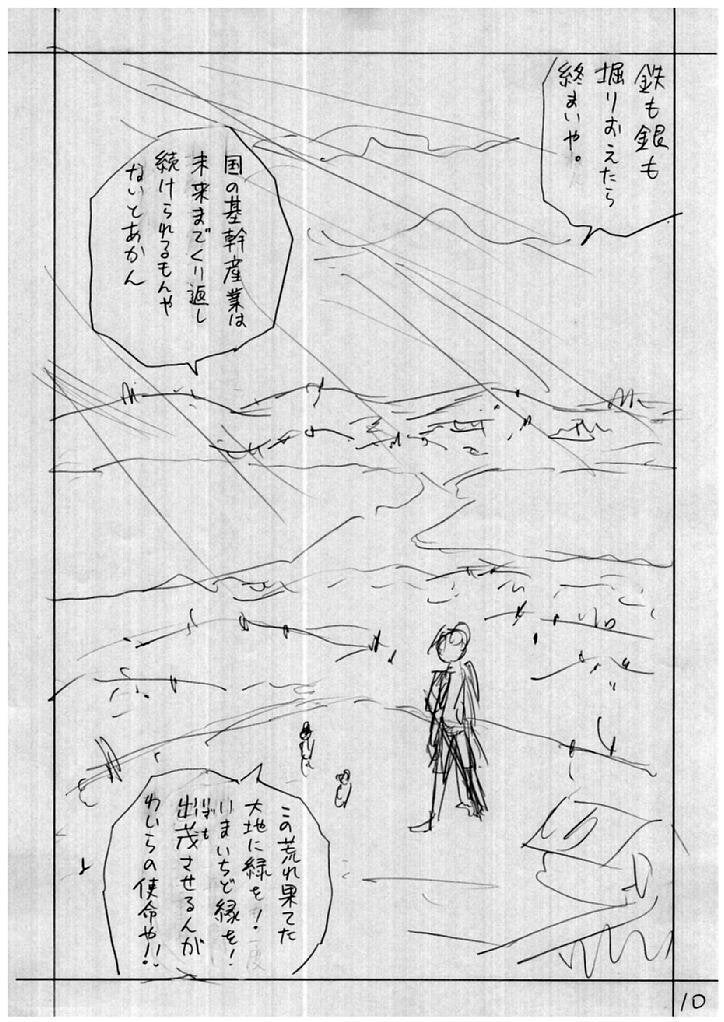 鉄も銀も
掘りおえたら
終まいや。
国の基幹産業は
未来までくり返し
続けられるもんや
ないとあかん
この荒れ果てた
大地に緑を!
いまいちど緑を!
出茂させるんが
ばも
わいらの使命や!!
10